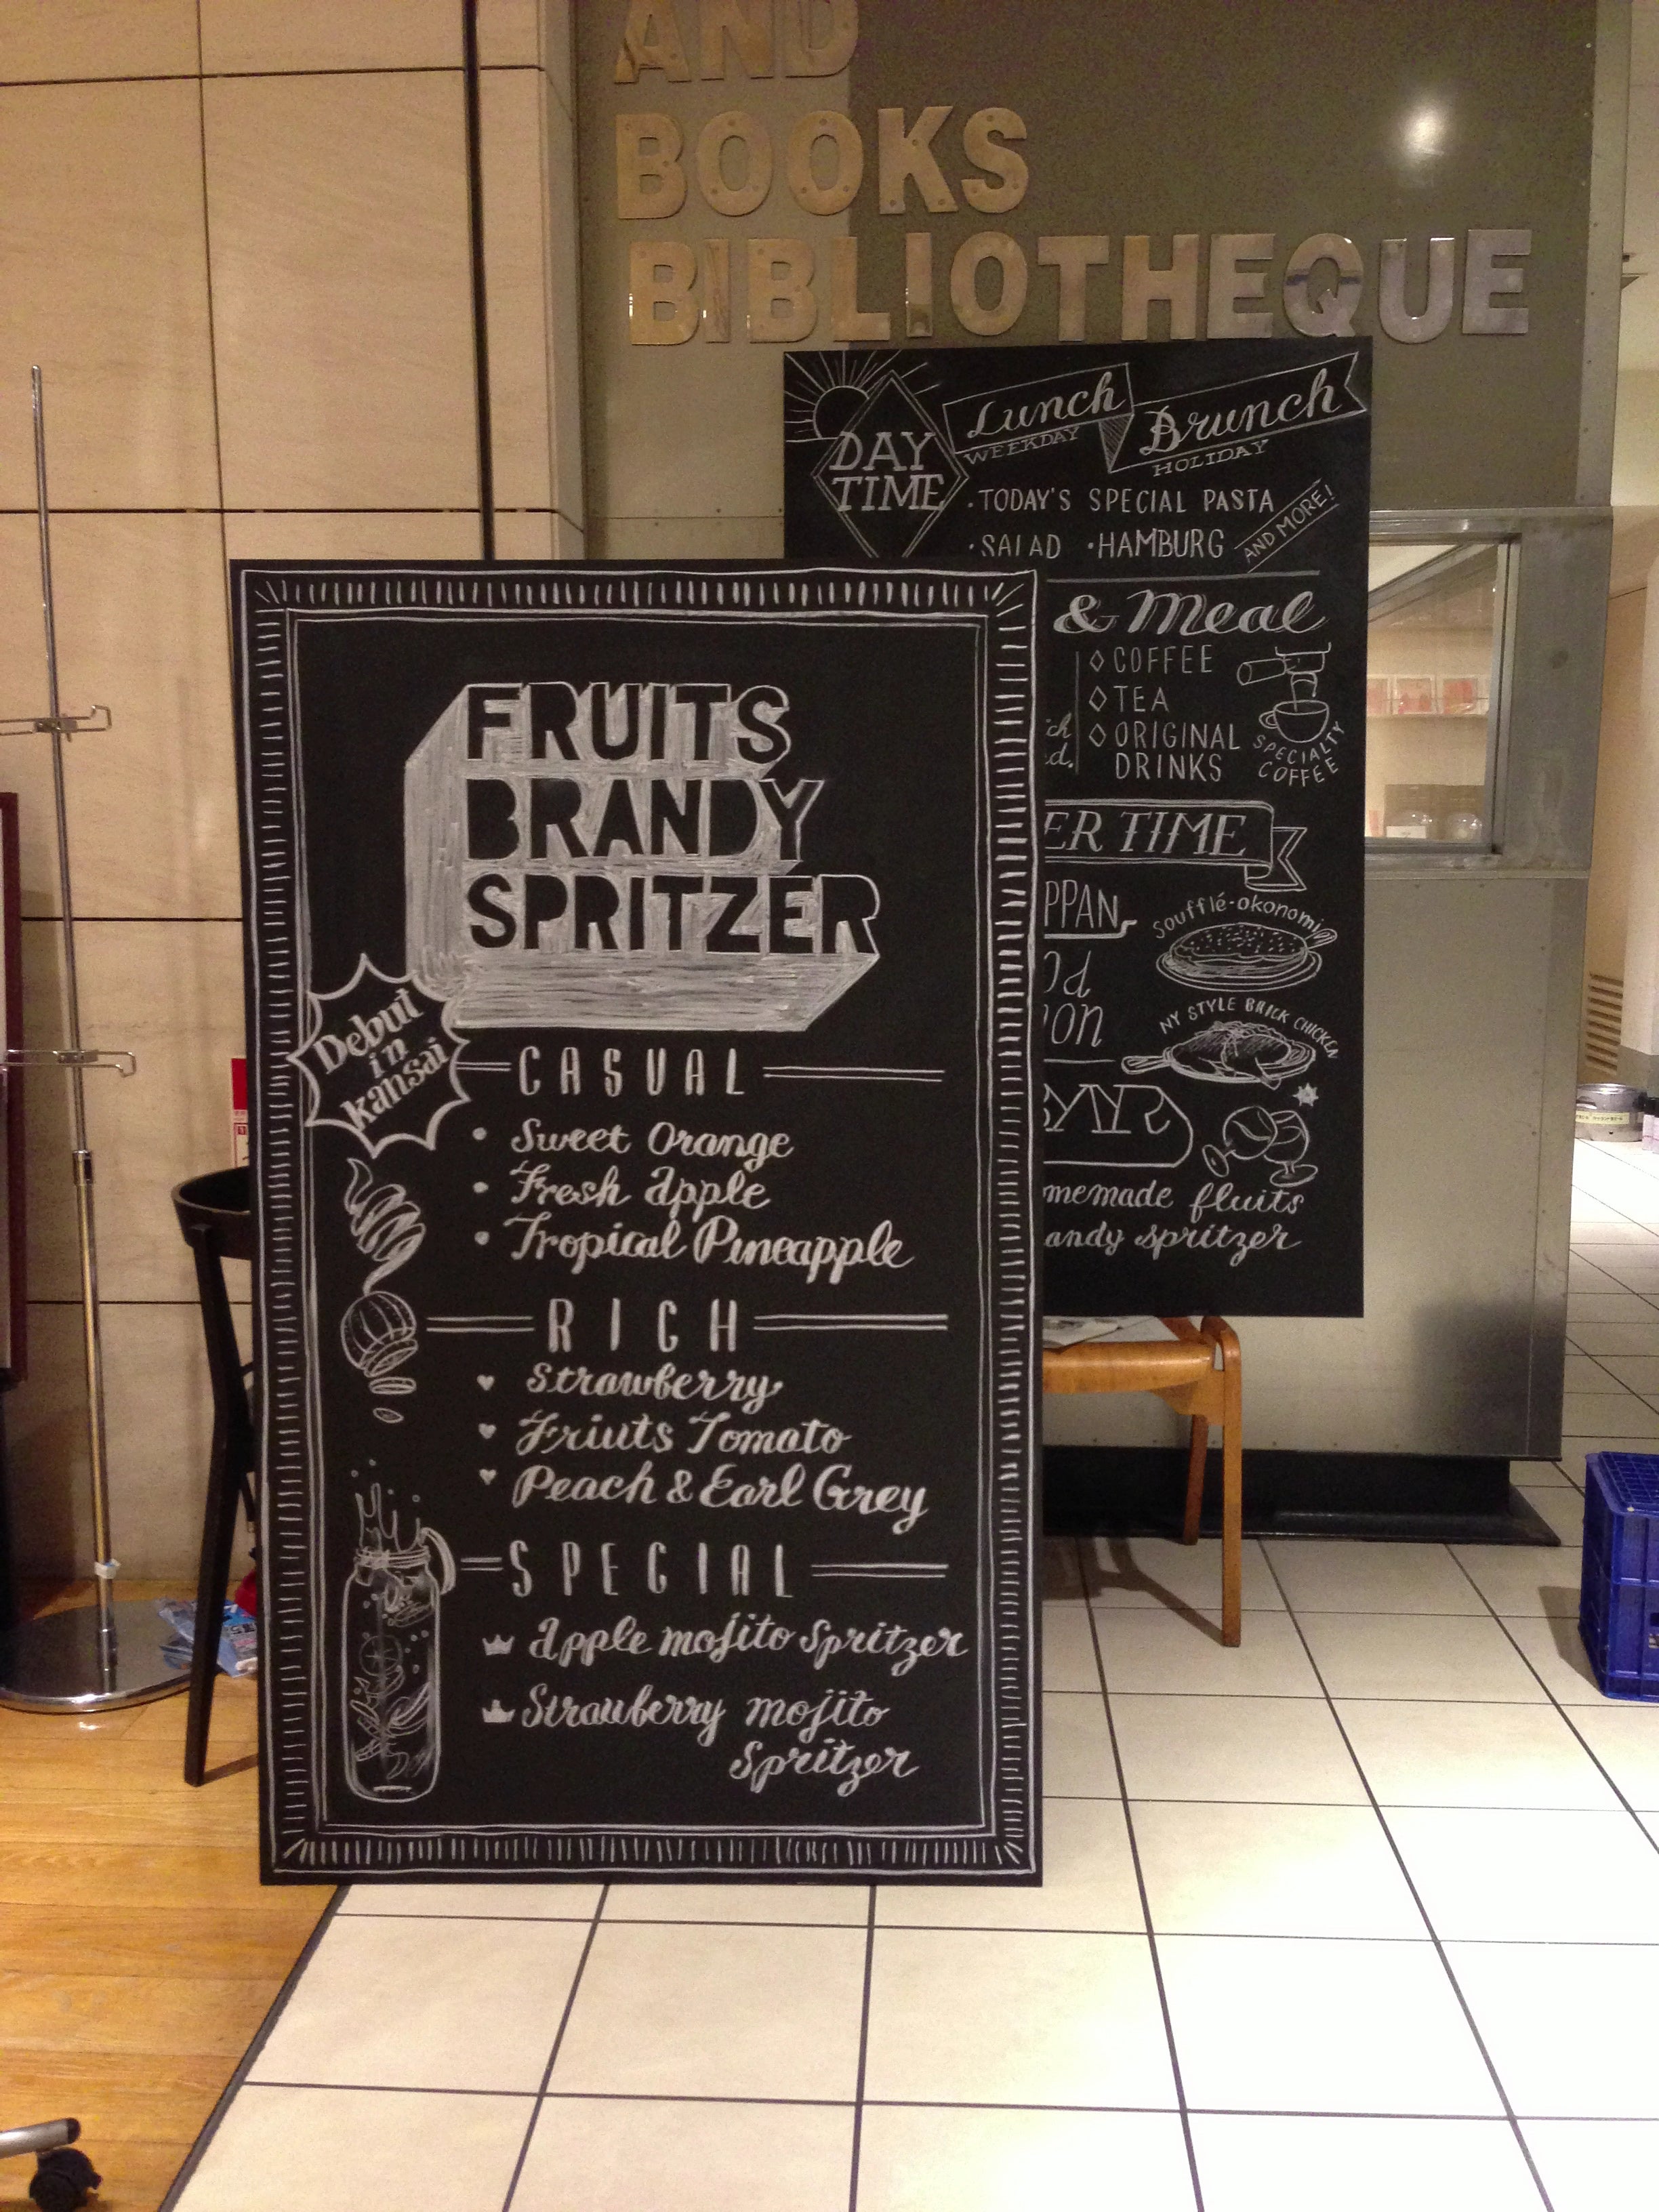 AND
BOOKS
BIBLIOTHEQUE
DAY
TIME
Lunch
WEEKDAY
Brunch
HOLIDAY
·TODAY'S SPECIAL PASTA
·SALAD ·HAMBURG
AND MORE!
& Meal
COFFEE
TEA
ORIGINAL
DRINKS
SPECIALTY
COFFEE
ich
d.
ER TIME
PPAN
Soufflé-okonomi
od
on
NY STYLE BRICK CHICKEN
BAR
memade fluits
andy spritzer
FRUITS
BRANDY
SPRITZER
Debut
in
kansai
CASUAL
• Sweet Orange
• Fresh apple
• Tropical Pineapple
RICH
♥ Strawberry
♥ Friuts Tomato
♥ Peach & Earl Grey
SPECIAL
apple mojito Spritzer
Strawberry mojito
Spritzer